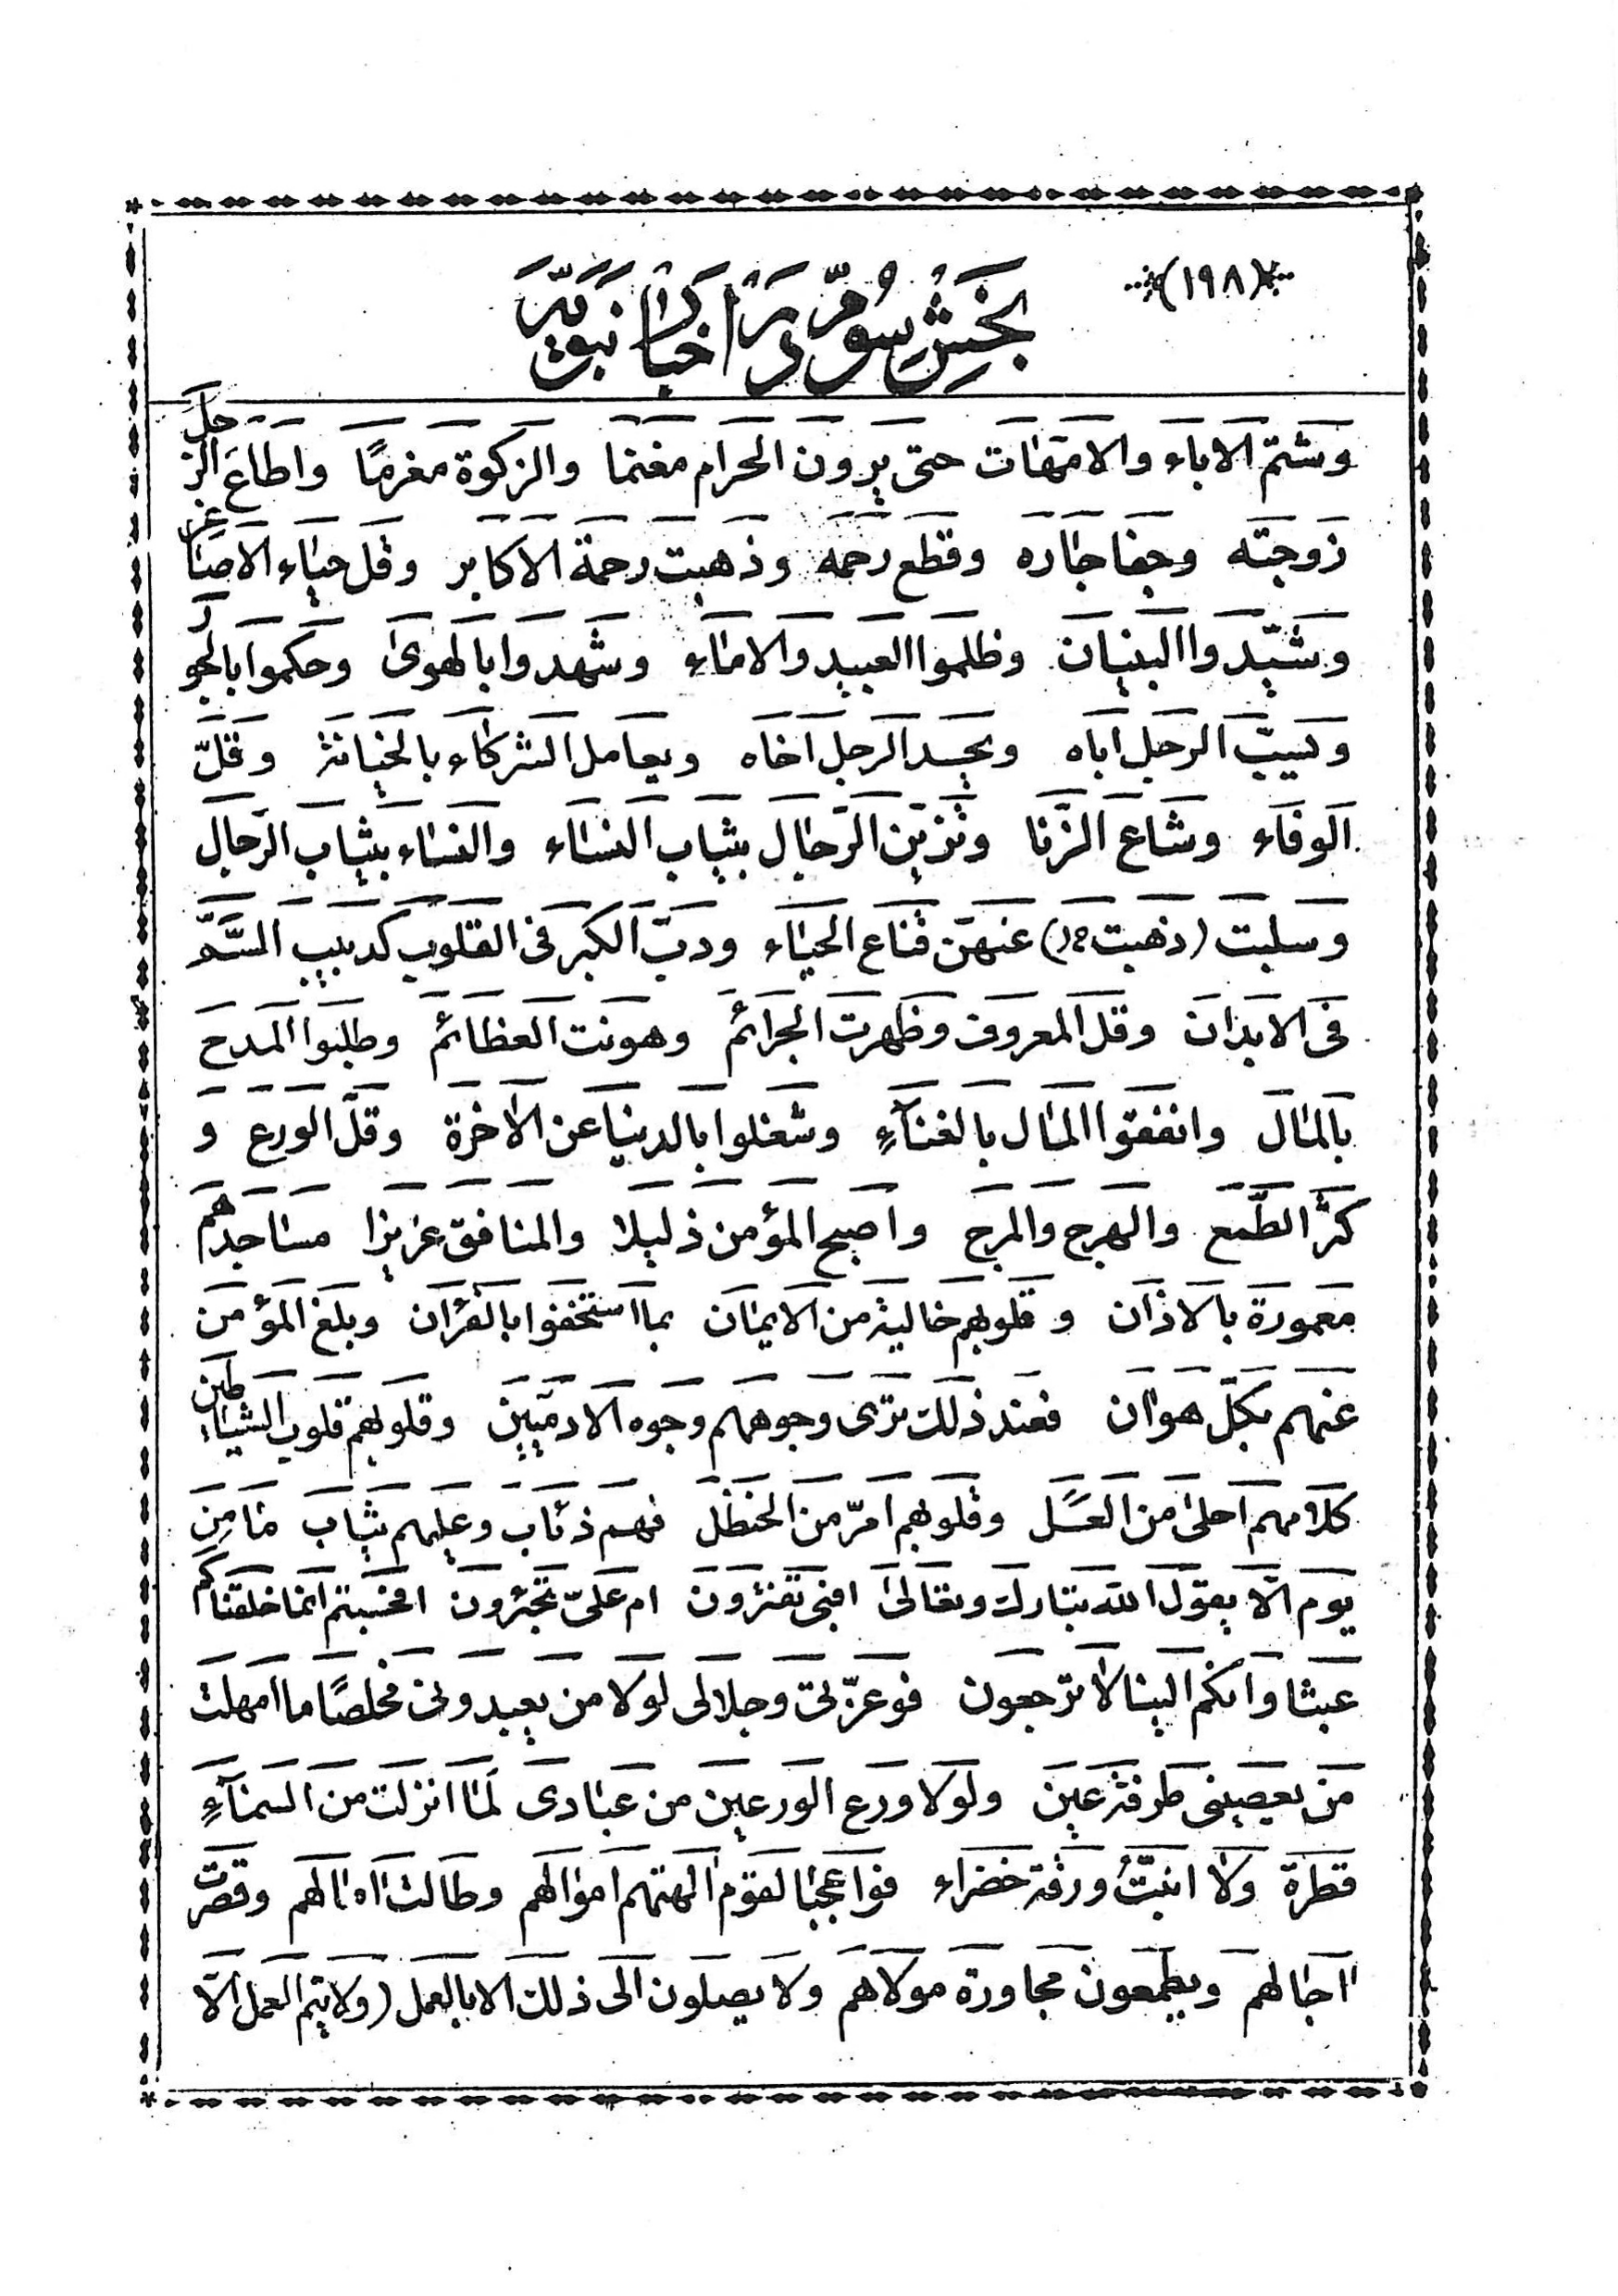 (١٩٨)
بخش سوم در اخبار نبویه
وشتم الاباء والامهات حتی یرون الحرام مغنما والزکوة مغرمًا واطاع الرجل
زوجته وجفا جاره وقطع رحمه وذهبت رحمة الاکابر وقل حیاء الاصاغر
وشیّدوا البنیان وظلموا العبید والاماء وشهدوا بالهوی وحکموا بالجور
ویسبّ الرجل اباه ویحسد الرجل اخاه ویعامل الشرکاء بالخیانة وقلّ
الوفاء وشاع الزّنا وتزین الرّجال بثیاب النساء والنساء بثیاب الرّجال
وسلبت (ذهبت خ‌ل) عنهنّ قناع الحیاء ودبّ الکبر فی القلوب کدبیب السّمّ
فی الابدان وقل المعروف وظهرت الجرائم وهونت العظائم وطلبوا المدح
بالمال وانفقوا المال بالغنآء وشغلوا بالدنیا عن الاخرة وقلّ الورع و
کثر الطّمع والهرج والمرج واصبح المؤمن ذلیلا والمنافق عزیزا مساجدهم
معمورة بالاذان وقلوبهم خالیة من الایمان بما استخفوا بالقرٔان وبلغ المؤمن
عنهم بکلّ هوان فعند ذلک تری وجوههم وجوه الادمیّین وقلوبهم قلوب الشیاطین
کلامهم احلی من العسل وقلوبهم امرّ من الحنظل فهم ذئاب وعلیهم ثیاب مامِن
یوم الّا یقول الله تبارک وتعالی افبی تغترون ام علیّ تجترون افحسبتم انما خلقناکم
عبثا وانکم الینا لا ترجعون فوعزّتی وجلالی لولا من یعبدونی مخلصًا ما امهلت
من یعصینی طرفة عین ولولا ورع الورعین من عبادی لما انزلت من السمآء
قطرة ولا انبتّ ورقة خضراء فواعجبا لقوم الهتهم اموالهم وطالت امالهم وقصرت
اجالهم ویطمعون مجاورة مولاهم ولا یصلون الی ذلک الا بالعمل (ولا یتم العمل الّا